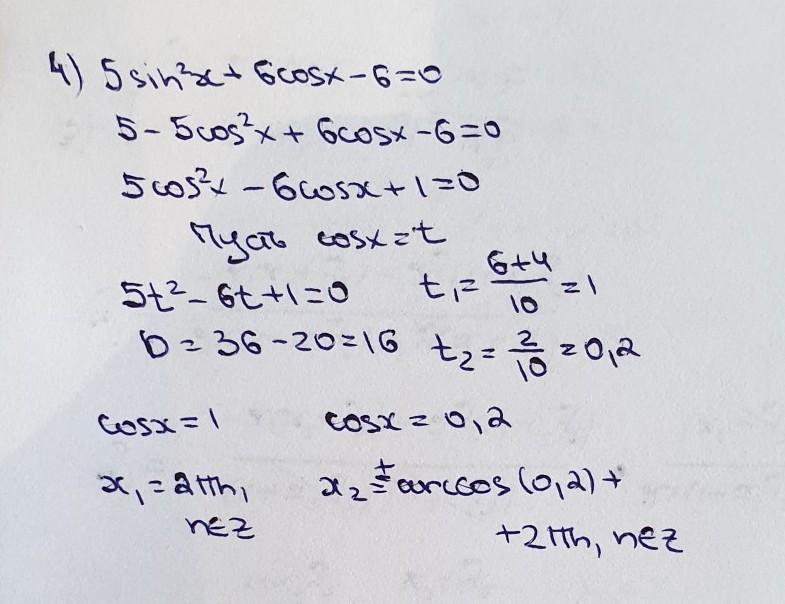 4) 5sin²x + 6cosx - 6 = 0
5 - 5cos²x + 6cosx - 6 = 0
5cos²x - 6cosx + 1 = 0
Пусть cosx = t
5t² - 6t + 1 = 0 t₁ = (6+4)/10 = 1
D = 36 - 20 = 16 t₂ = 2/10 = 0,2
cosx = 1 cosx = 0,2
x₁ = 2πn, x₂ = ± arccos (0,2) +
n∈Z +2πn, n∈Z